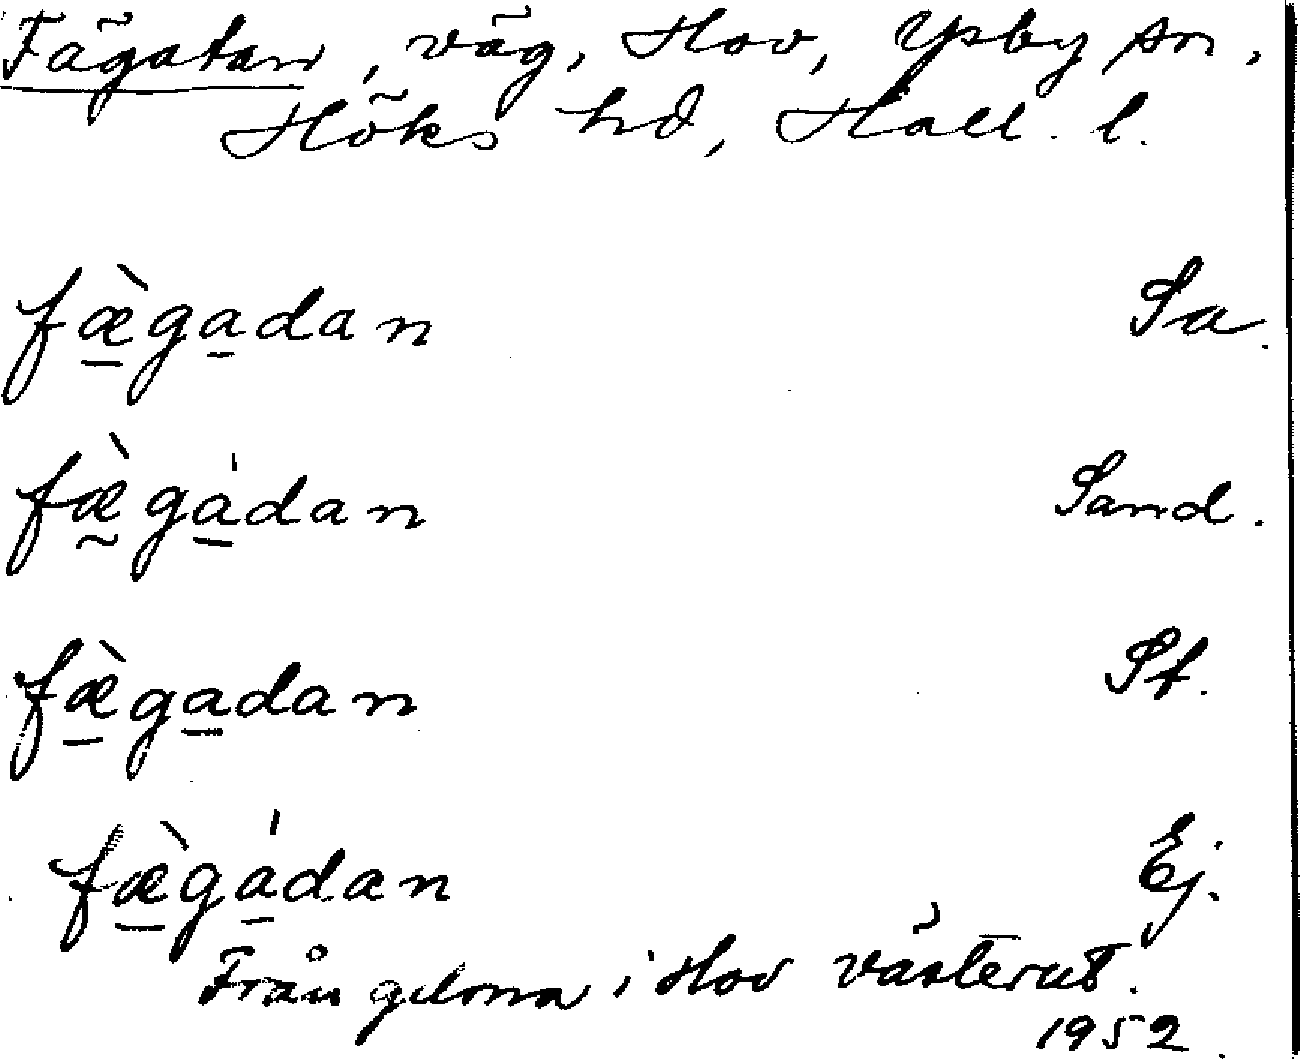 Fägatan, väg, Hov, Ysby sn,
Höks hd, Hall. l.
fæ̀gadan Sa.
fæ̀gádan Sand.
fæ̀gadan St.
fæ̀gádan Ej.
Från gdrna i Hov västerut.
1952